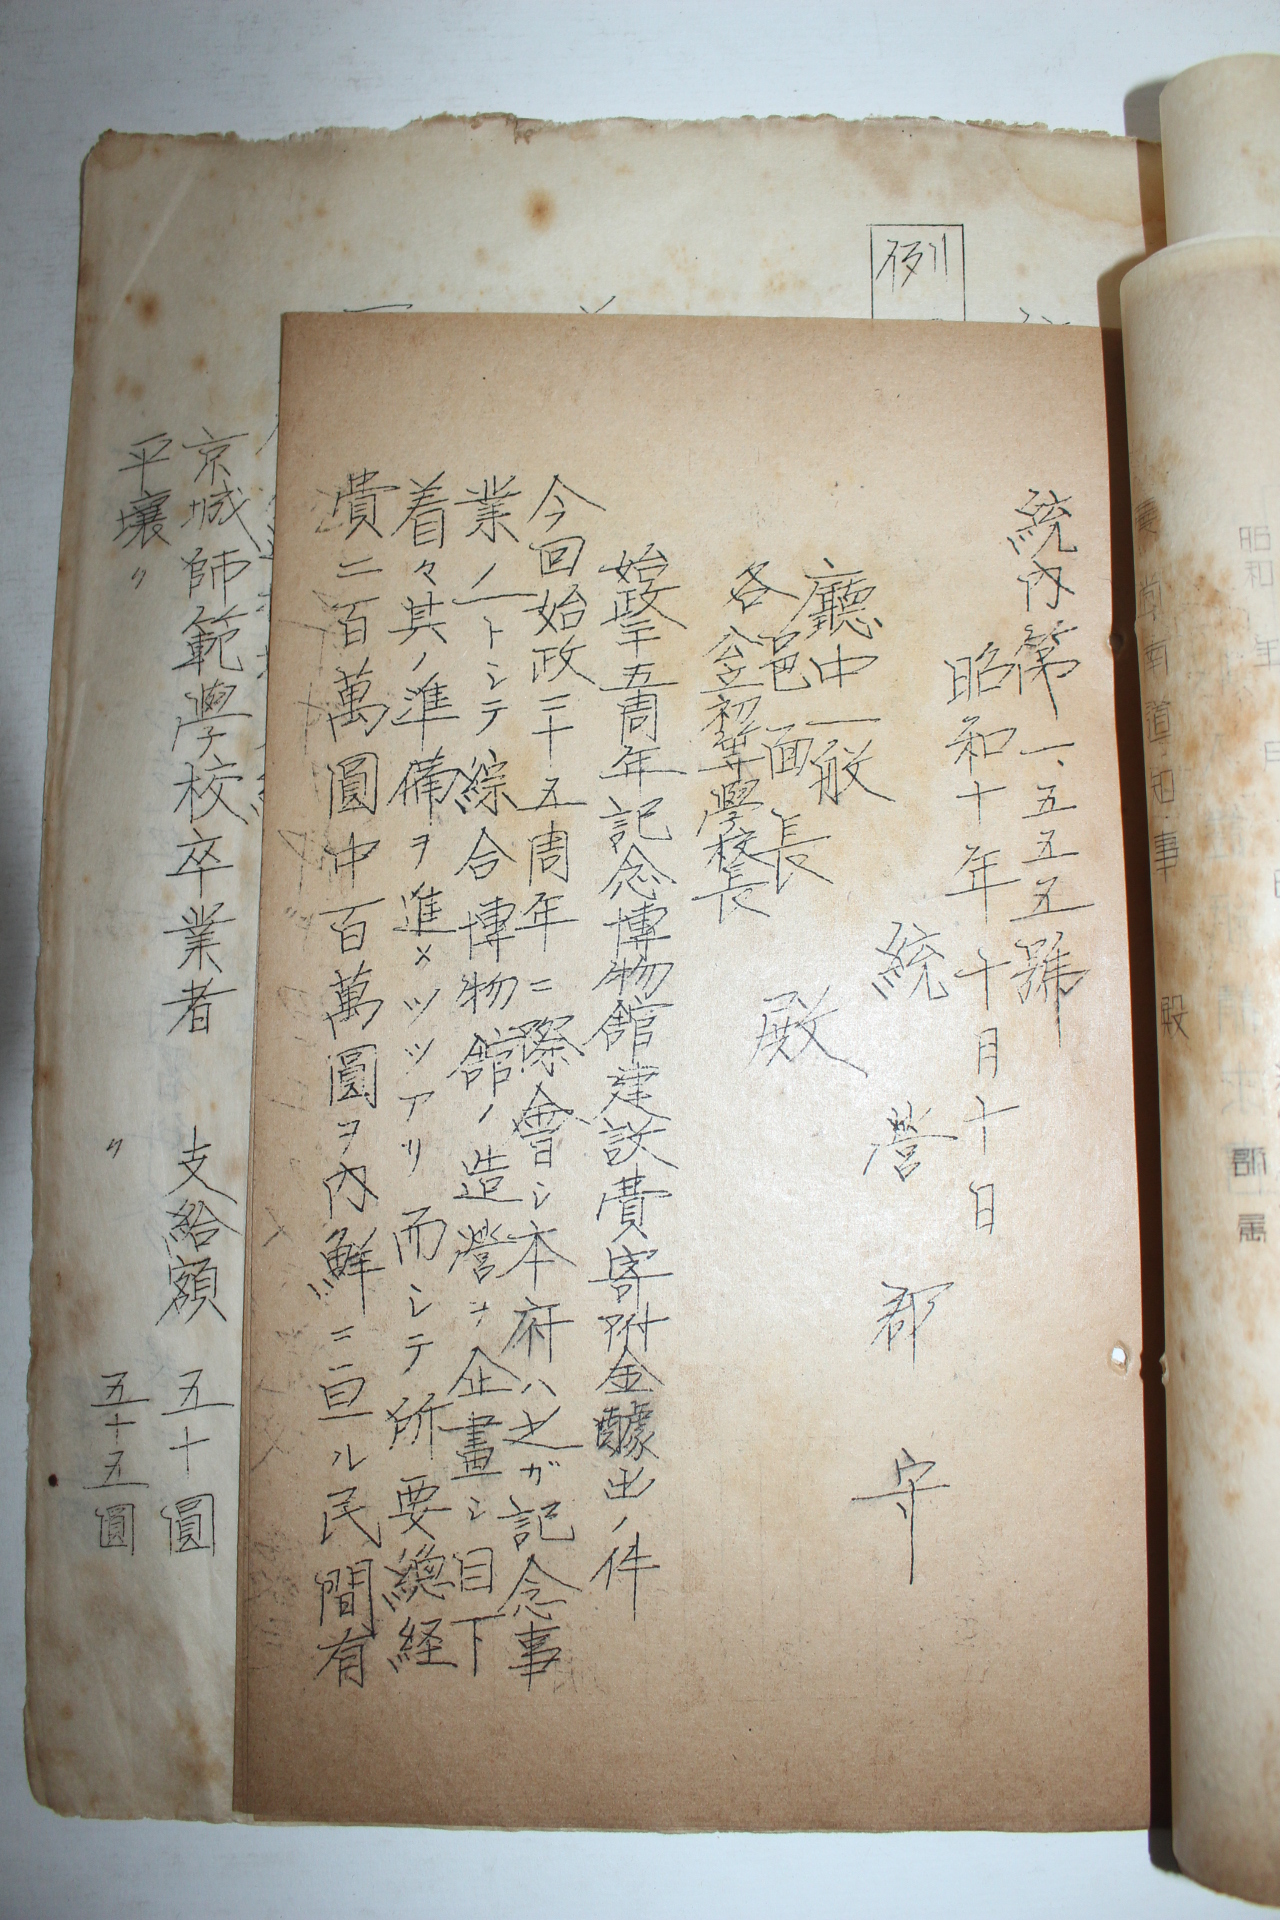 統內第一、五五五號
昭和十年十月十日
統營郡守
廳中一般
各邑面長
公立初等學校長
殿
始政二十五周年記念博物館建設費寄附金醵出ノ件
今回始政二十五周年ニ際會シ本府ハ之ガ記念事
業ノ一トシテ綜合博物館ノ造營ヲ企畫シ目下
着々其ノ準備ヲ進メツツアリ而シテ所要總経
費二百萬圓中百萬圓ヲ內鮮ニ亘ル民間有
例
京城師範學校卒業者 支給額 五十圓
平壤〃 〃 五十五圓
昭和 年
南道知事 殿
郡屬